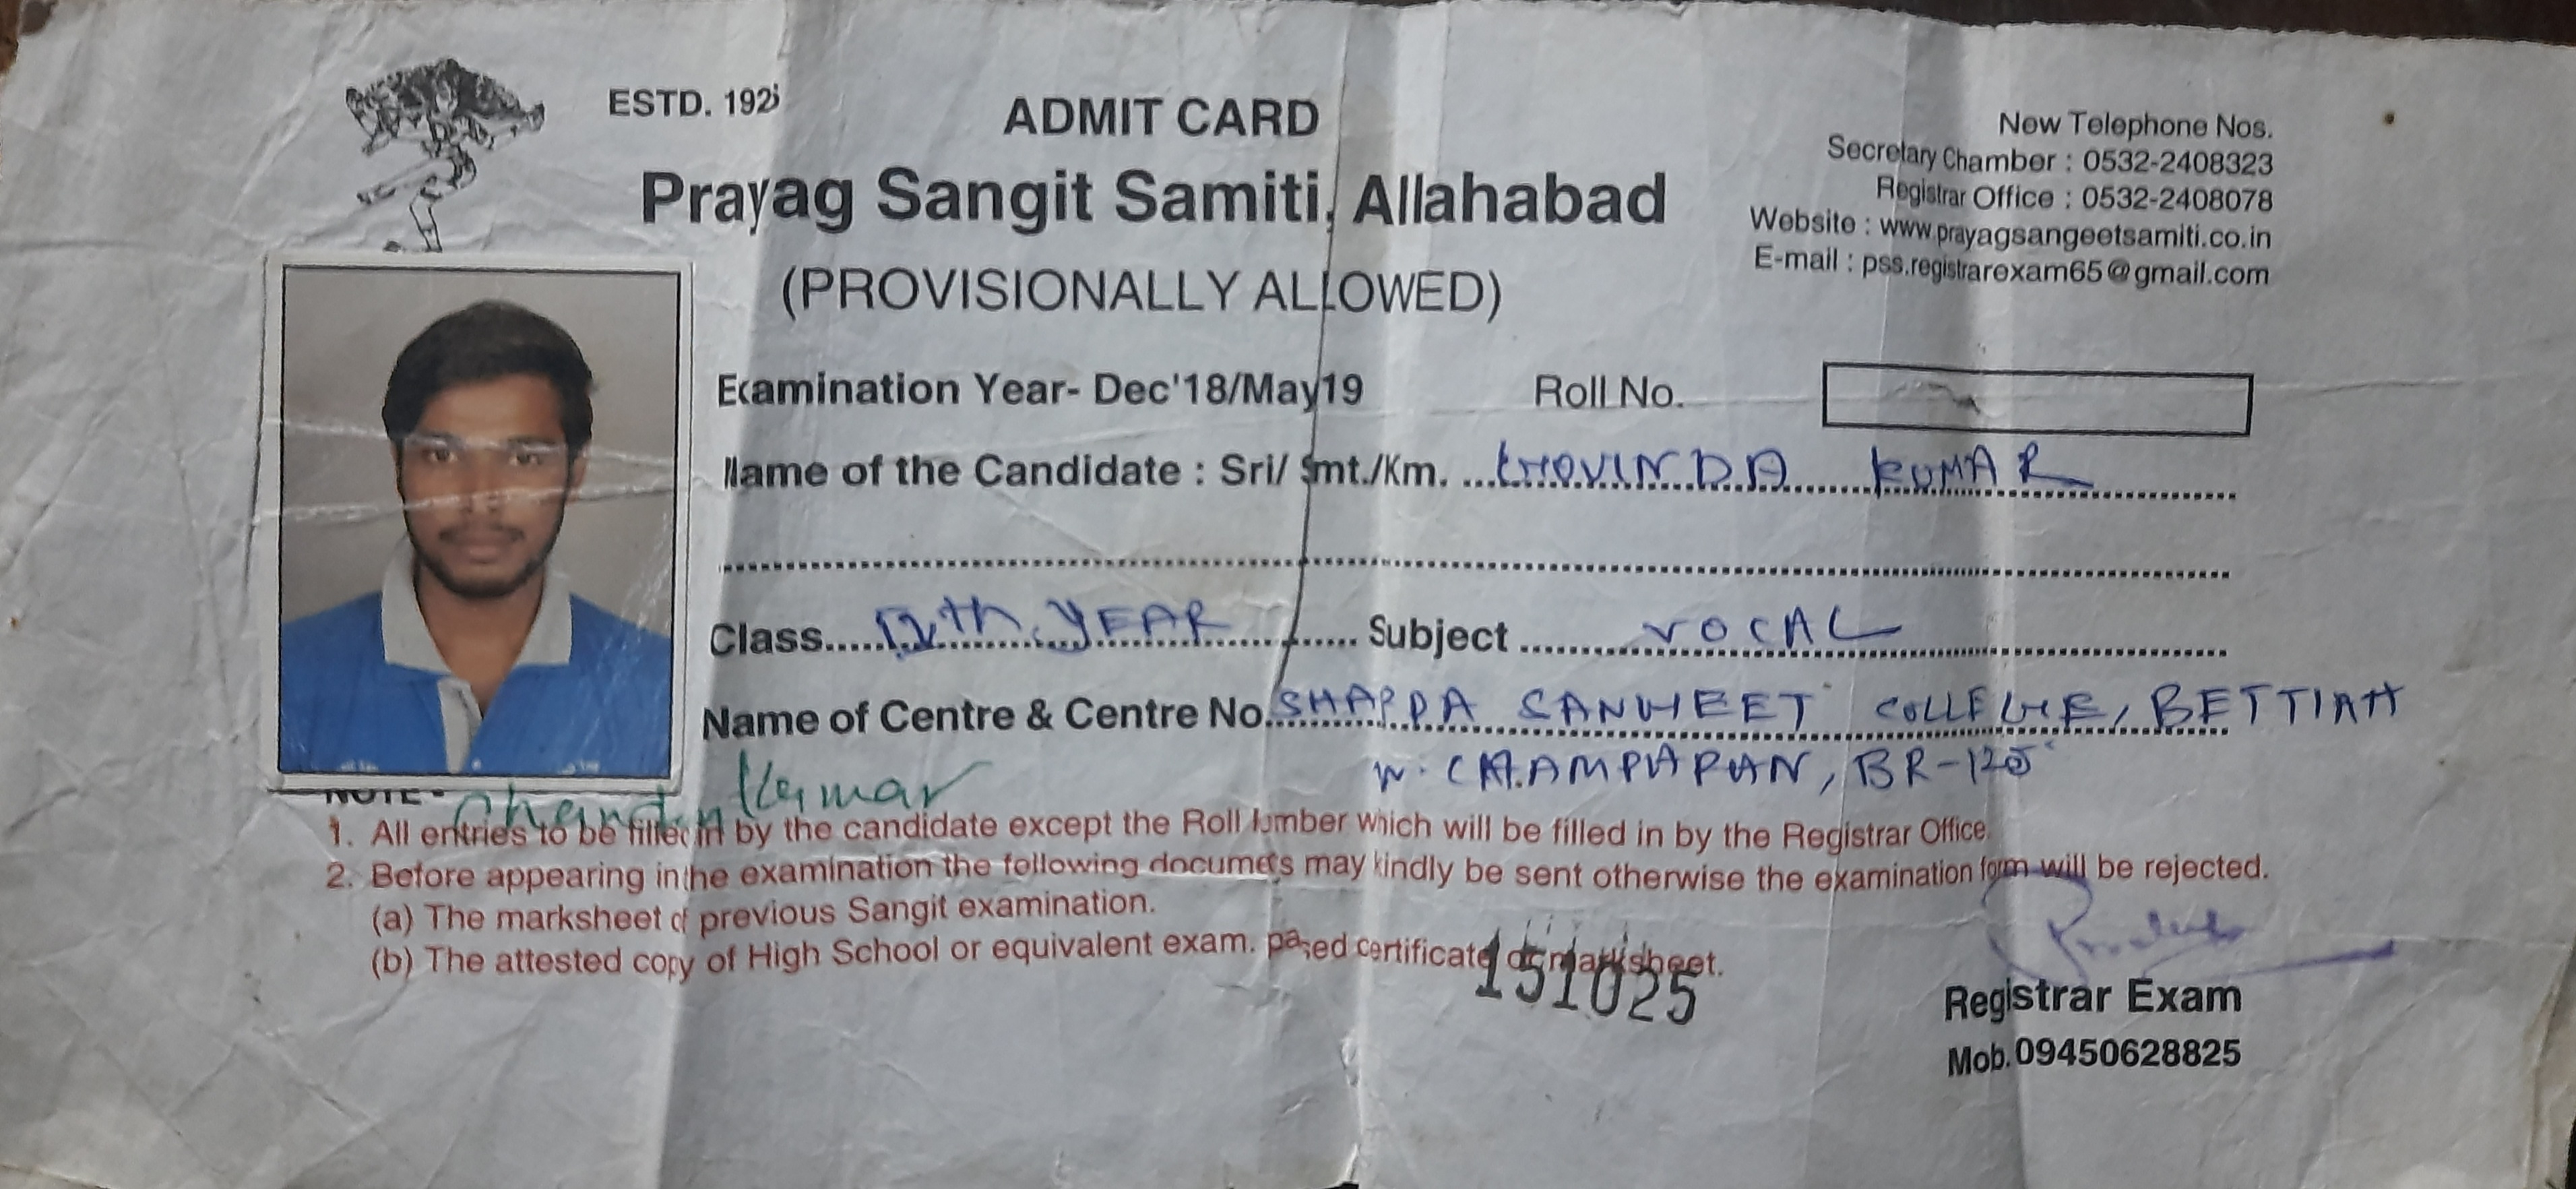 ESTD. 192
ADMIT CARD
Prayag Sangit Samiti, Allahabad
(PROVISIONALLY ALLOWED)
New Telephone Nos.
Secretary Chamber : 0532-2408323
Registrar Office : 0532-2408078
Website : www.prayagsangeetsamiti.co.in
E-mail : pss.registrarexam65@gmail.com
Examination Year- Dec'18/May19 Roll No.
Name of the Candidate : Sri/ Smt./Km. GOVINDA KUMAR
Class..... th YEAR ...... Subject ...... VOCAL
Name of Centre & Centre No. SHARDA SANGEET COLLEGE, BETTIAH
W. CHAMPARAN, BR-125
Kumar
NOTE -
1. All entries to be filled in by the candidate except the Roll Number which will be filled in by the Registrar Office.
2. Before appearing in the examination the following documets may kindly be sent otherwise the examination form will be rejected.
(a) The marksheet of previous Sangit examination.
(b) The attested copy of High School or equivalent exam. passed certificate or marksheet.
151025
Registrar Exam
Mob. 09450628825